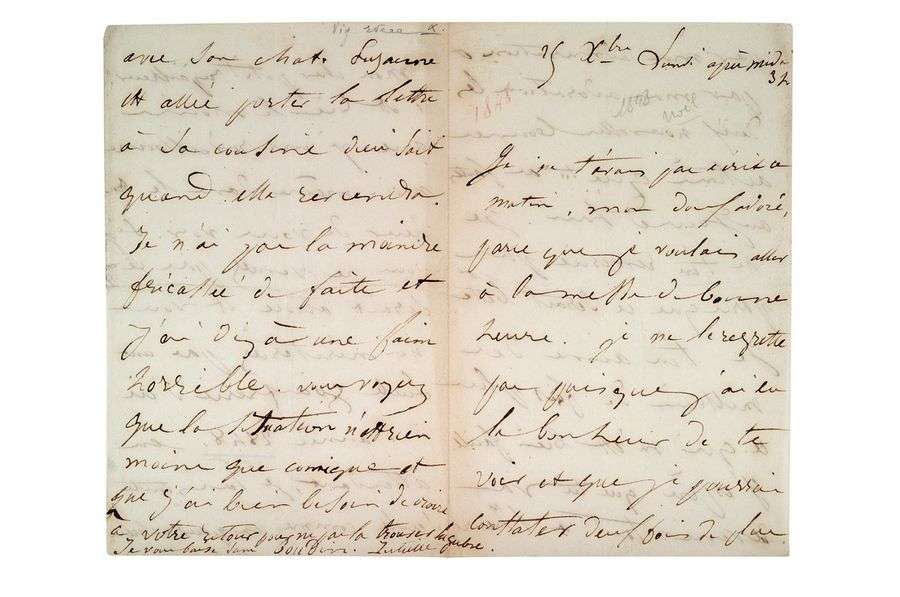 avec son chat. Suzanne
est allée porter la lettre
à sa cousine dieu sait
quand elle reviendra.
Je n'ai pas la moindre
fricassée de faite et
j'ai déjà une faim
horrible. vous voyez
que la situation n'est rien
moins que comique et
que j'ai bien besoin de croire
à votre retour pour ne pas la trouver lugubre.
Je vous baise sans Juliette
25 Xbre Lundi après midi
3 h
1848
noel
Je ne t'avais pas écrit ce
matin, mon doux adoré,
parce que je voulais aller
à la messe de bonne
heure. je ne le regrette
pas puisque j'ai eu
le bonheur de te
voir et que je pourrai
constater deux fois de plus